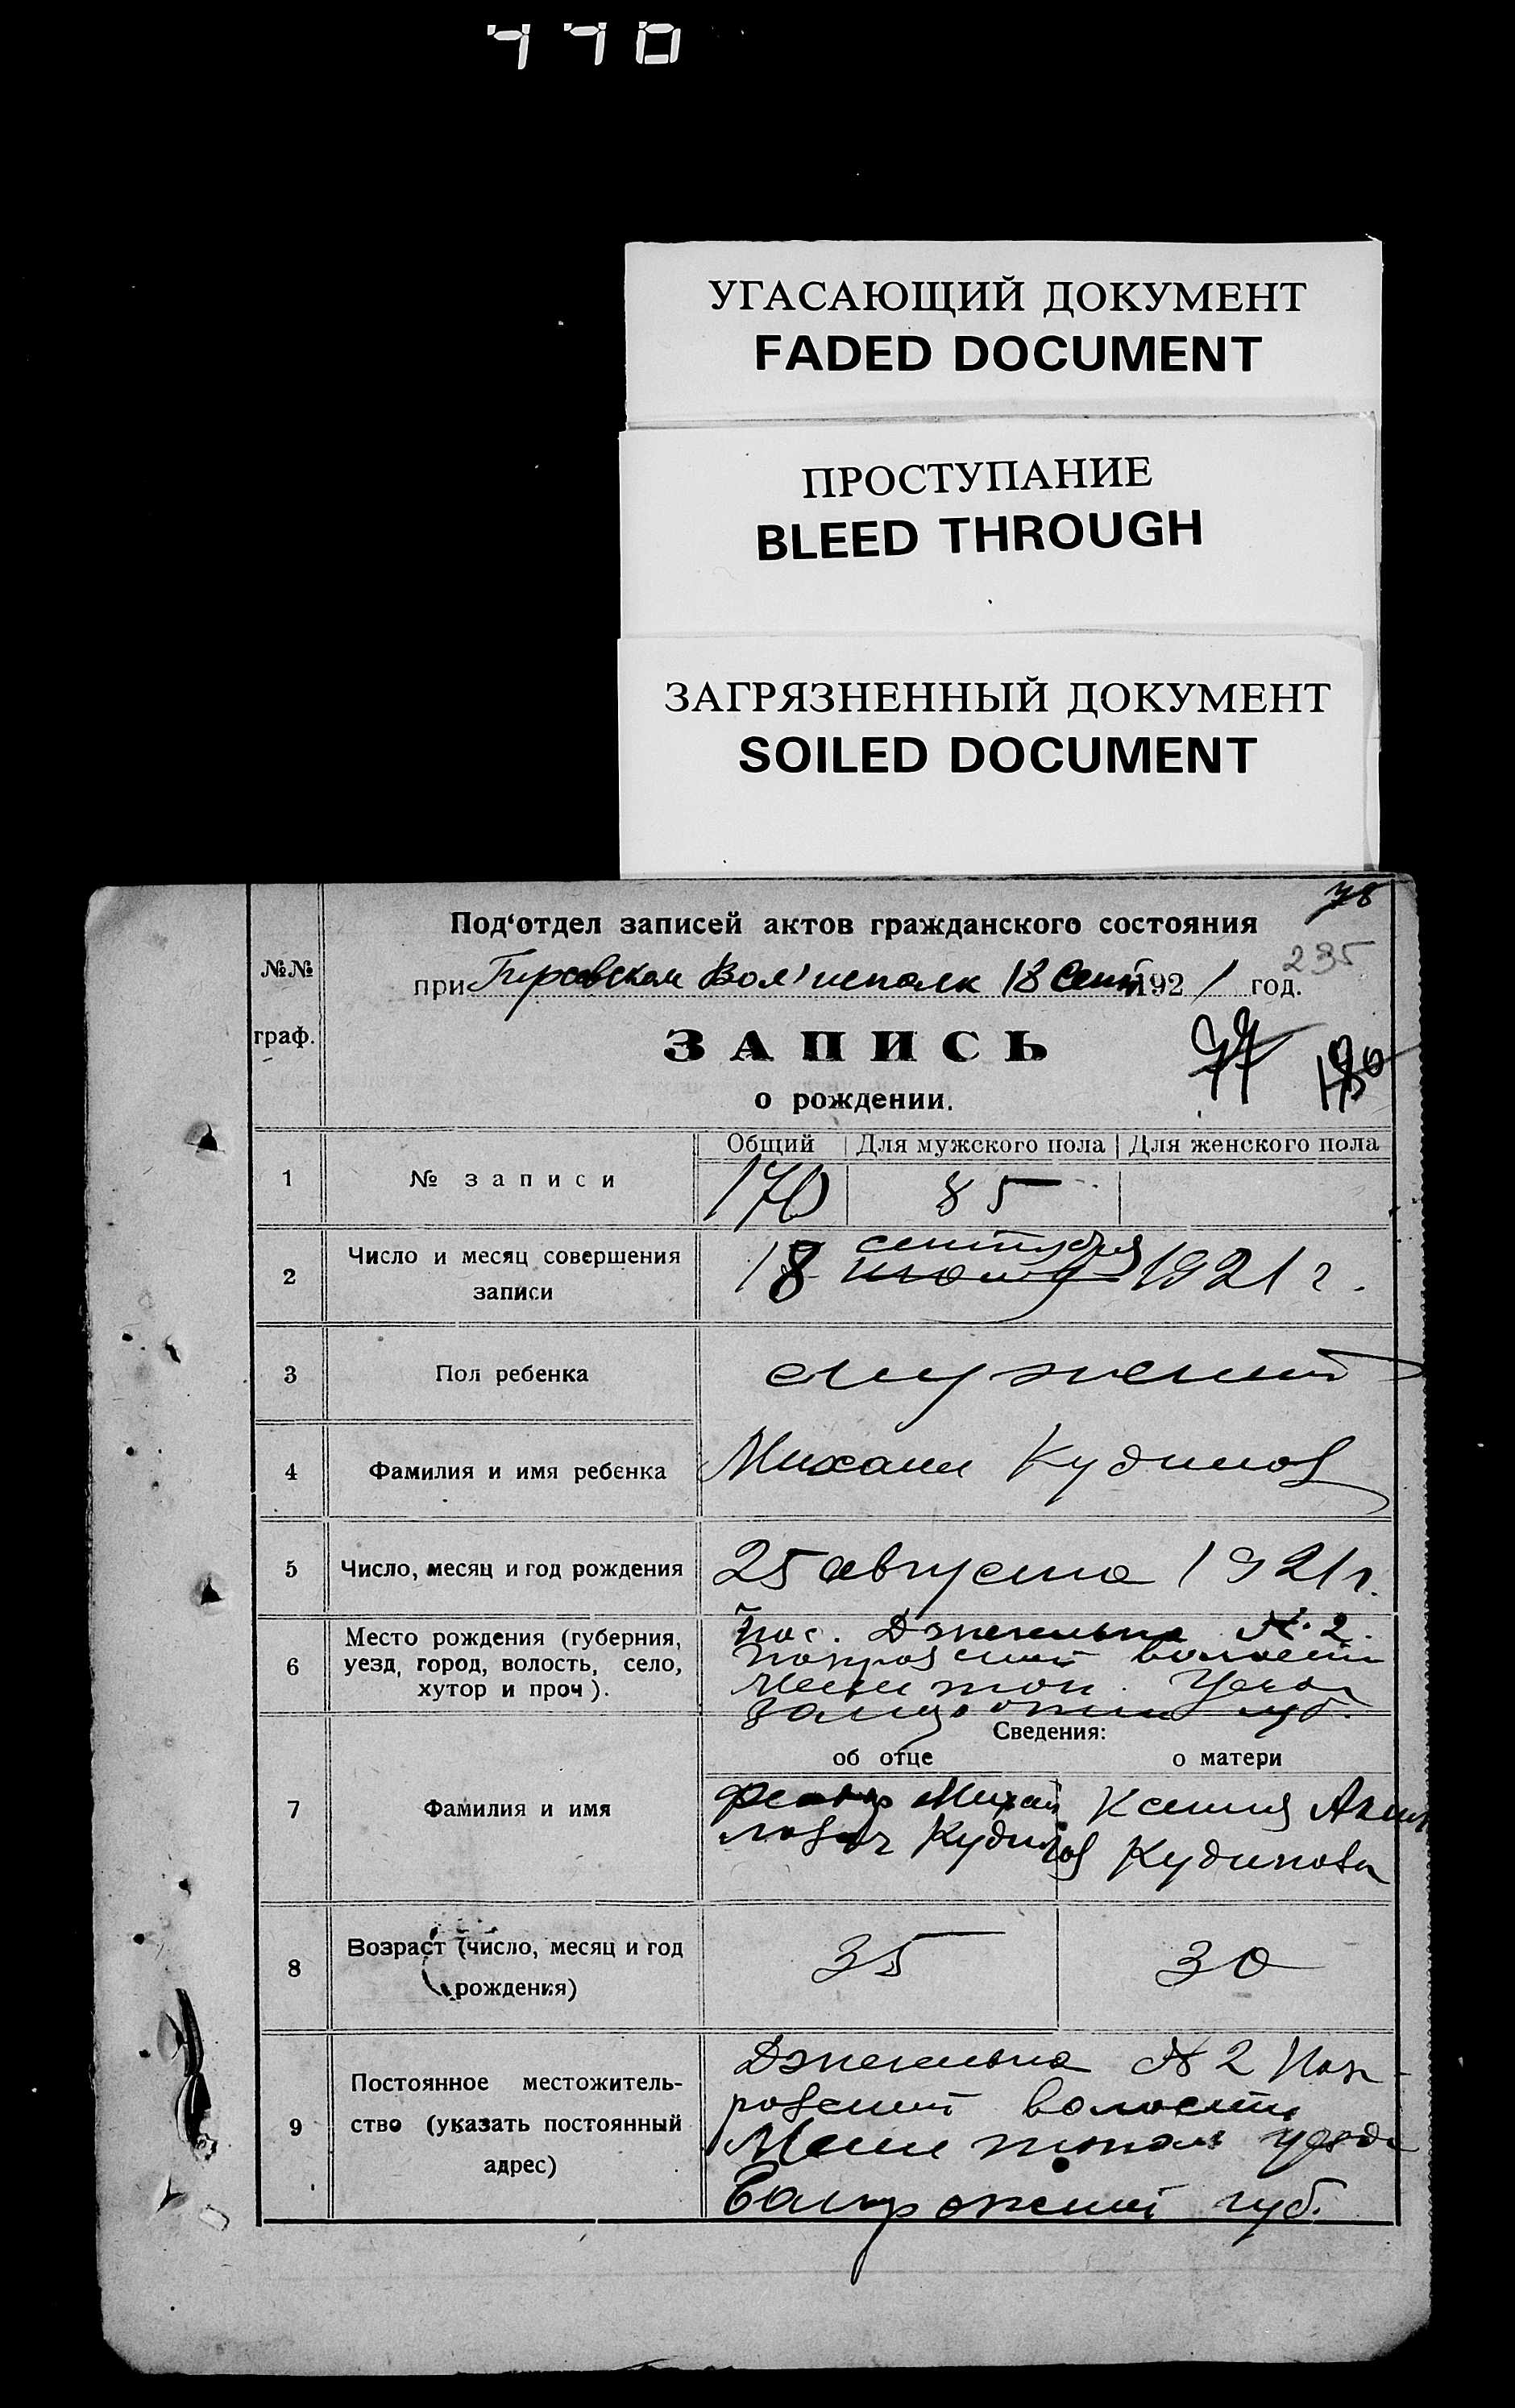 770
УГАСАЮЩИЙ ДОКУМЕНТ
FADED DOCUMENT
ПРОСТУПАНИЕ
BLEED THROUGH
ЗАГРЯЗНЕННЫЙ ДОКУМЕНТ
SOILED DOCUMENT
78
Под‘отдел записей актов гражданского состояния
235
№№ граф.
при Вол'исполк 18 Сент 1921 год.
ЗАПИСЬ
77 190
о рождении.
Общий Для мужского пола Для женского пола
1 № записи 170 85
2 Число и месяц совершения записи 18 сентября 1921 г.
3 Пол ребенка мужской
4 Фамилия и имя ребенка Михаил Кудинов
5 Число, месяц и год рождения 25 августа 1921 г.
6 Место рождения (губерния, уезд, город, волость, село, хутор и проч).
пос. №2.
Покровской волости
Мелитоп. Уезда
Запорожской губ.
Сведения:
об отце о матери
7 Фамилия и имя
Михай Ксения
лович Кудинов Кудинова
8 Возраст (число, месяц и год рождения) 35 30
9 Постоянное местожительство (указать постоянный адрес)
№2 Пок-
ровской волости
Мелитополь уезда
Запорожской губ.